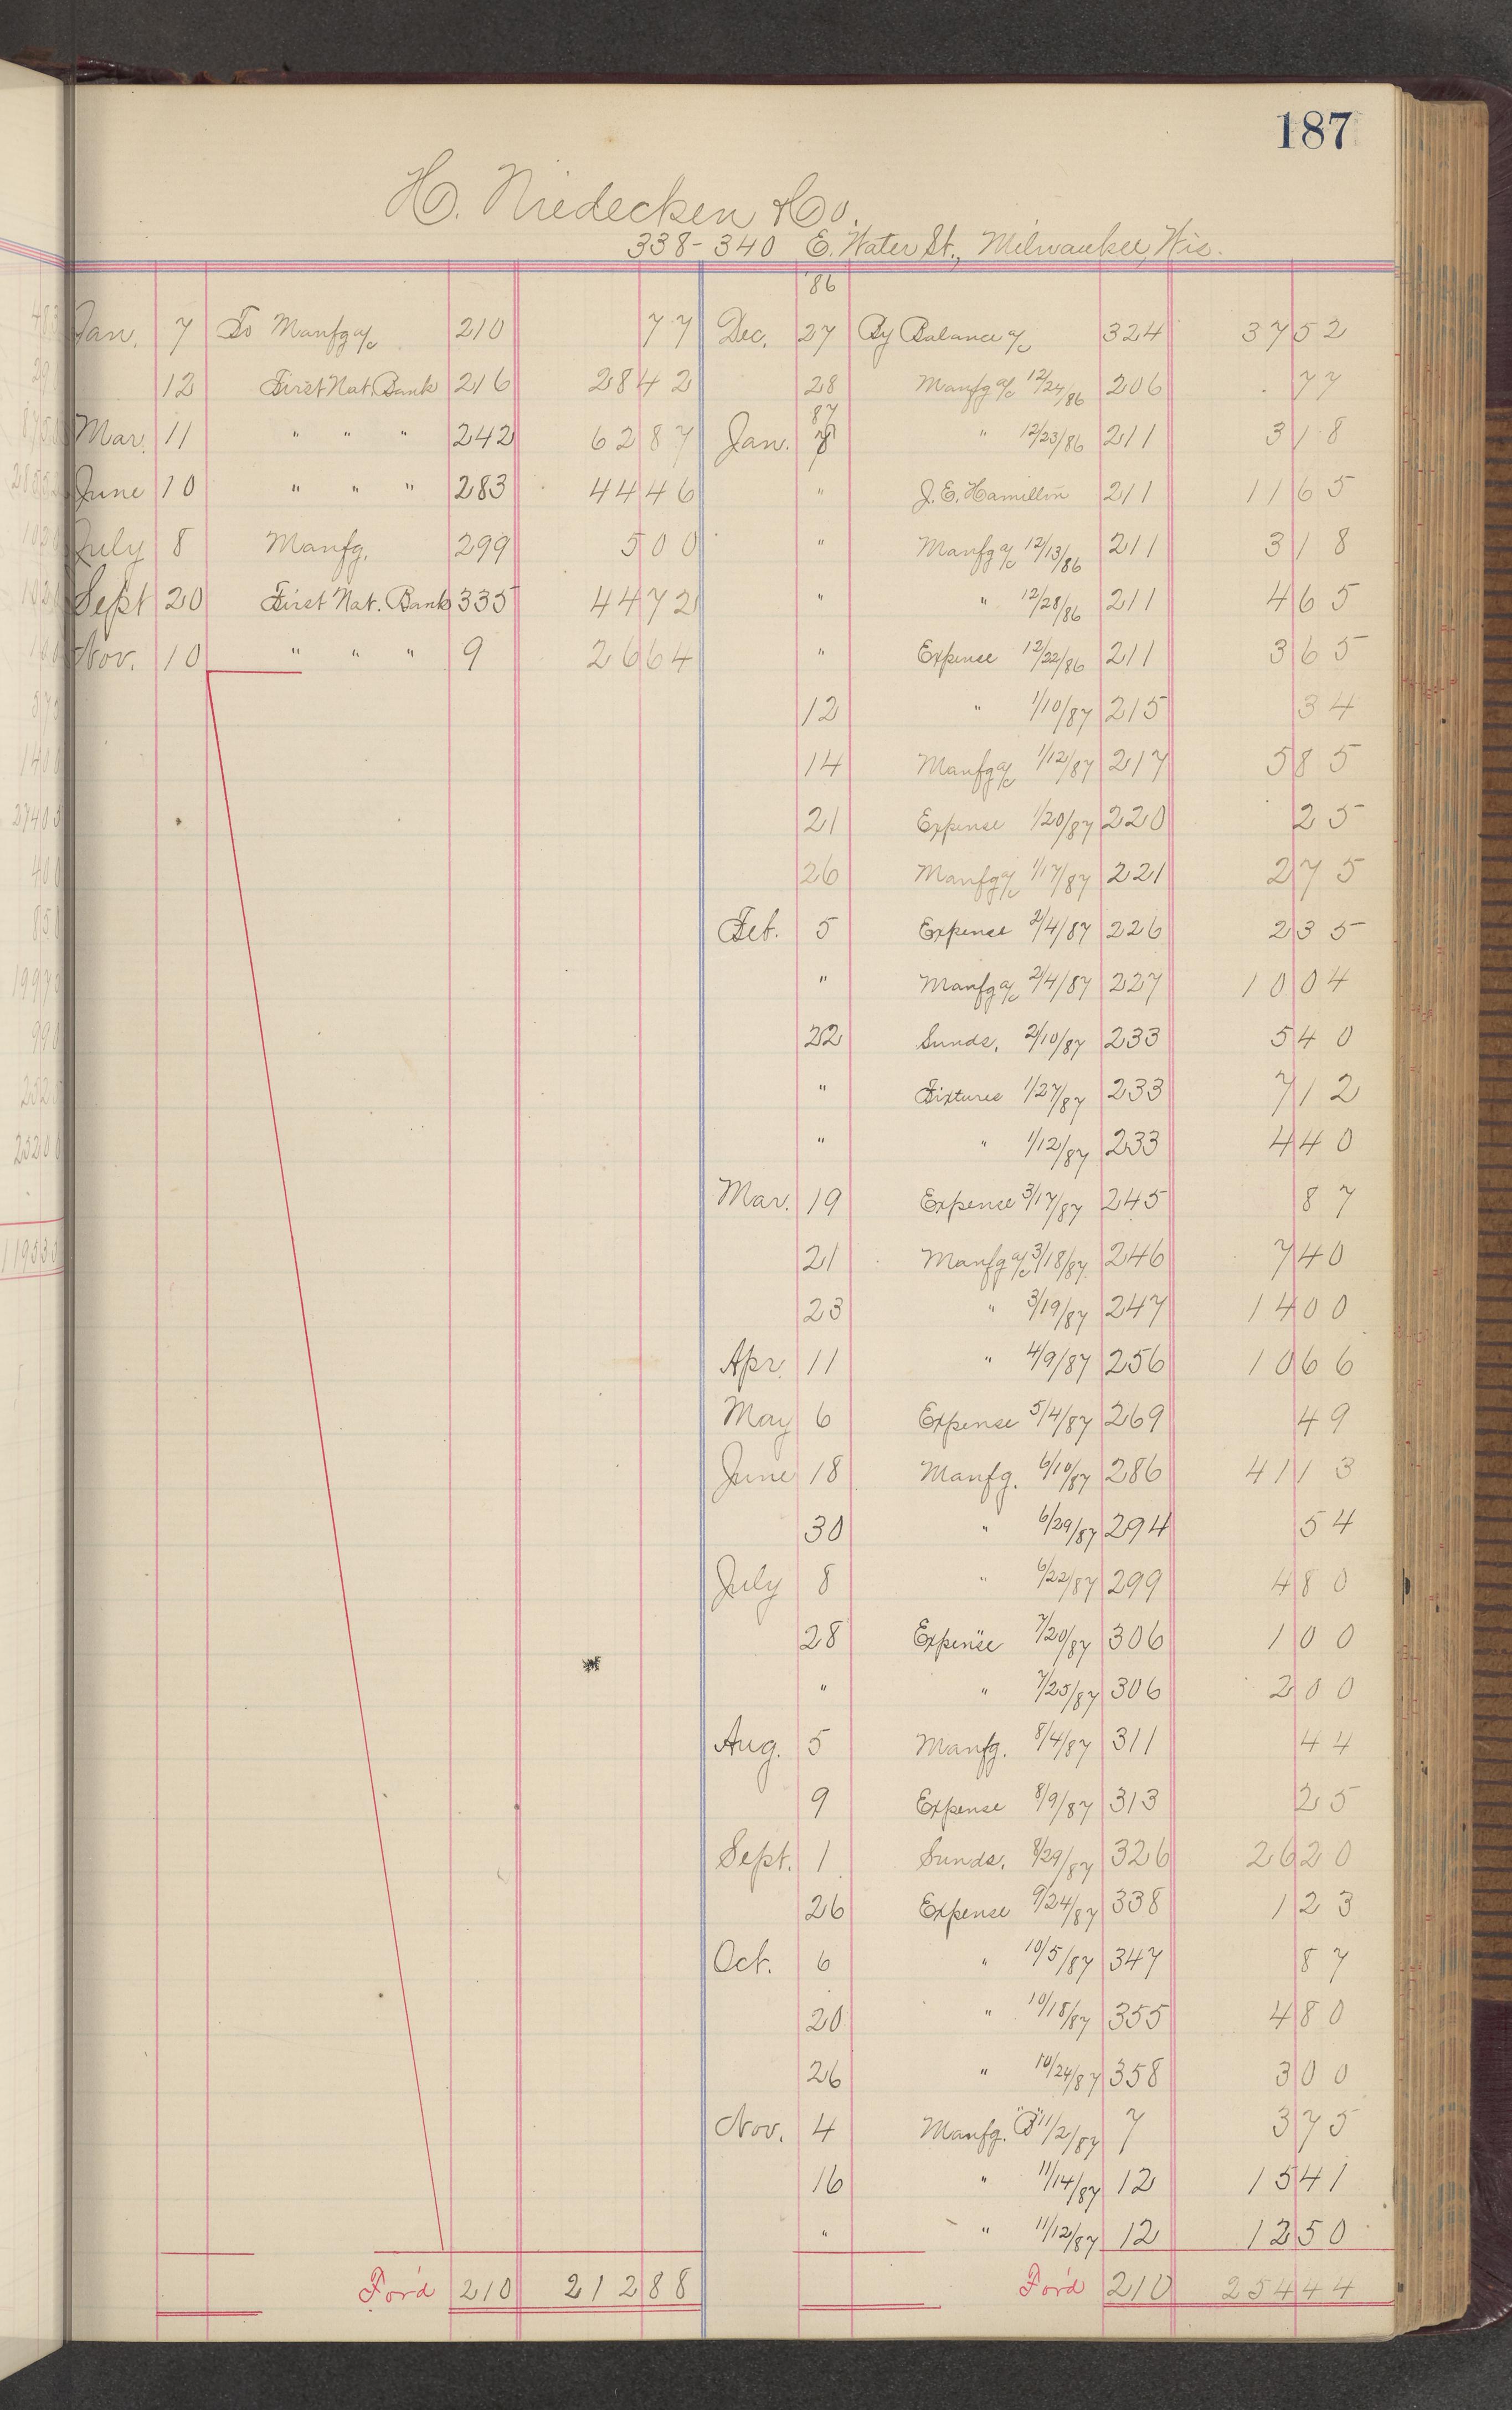 187
H. Niedecken & Co.
338-340 E. Water St., Milwaukee, Wis.
'86
Jan. 7 To Manfg a/c 210 77 Dec. 27 By Balance a/c 324 37 52
12 First Nat. Bank 216 28 42 28 Manfg a/c 12/24/86 206 77
87
Mar. 11 " " " 242 62 87 Jan. 8 " 12/23/86 211 3 18
June 10 " " " 283 44 46 " J. E. Hamillin 211 11 65
July 8 Manfg. 299 5 00 " Manfg a/c 12/13/86 211 3 18
Sept 20 First Nat. Bank 335 44 72 " " 12/28/86 211 4 65
Nov. 10 " " " 9 26 64 " Expense 12/22/86 211 3 65
12 " 1/10/87 215 34
14 Manfg a/c 1/12/87 217 5 85
21 Expense 1/20/87 220 25
26 Manfg a/c 1/17/87 221 2 75
Feb. 5 Expense 2/4/87 226 2 35
" Manfg a/c 2/4/87 227 10 04
22 Sunds. 2/10/87 233 5 40
" Fixtures 1/27/87 233 7 12
" " 1/12/87 233 4 40
Mar. 19 Expense 3/17/87 245 87
21 Manfg a/c 3/18/87 246 7 40
23 " 3/19/87 247 14 00
Apr. 11 " 4/9/87 256 10 66
May 6 Expense 5/4/87 269 49
June 18 Manfg. 6/10/87 286 41 13
30 " 6/29/87 294 54
July 8 " 6/22/87 299 4 80
28 Expense 7/20/87 306 1 00
" " 7/25/87 306 2 00
Aug. 5 Manfg. 8/4/87 311 44
9 Expense 8/9/87 313 25
Sept. 1 Sunds. 8/29/87 326 26 20
26 Expense 9/24/87 338 1 23
Oct. 6 " 10/5/87 347 87
20 " 10/18/87 355 4 80
26 " 10/24/87 358 3 00
Nov. 4 Manfg. "B" 11/2/87 7 3 75
16 " 11/14/87 12 15 41
" " 11/12/87 12 12 50
For'd 210 212 88 For'd 210 254 44